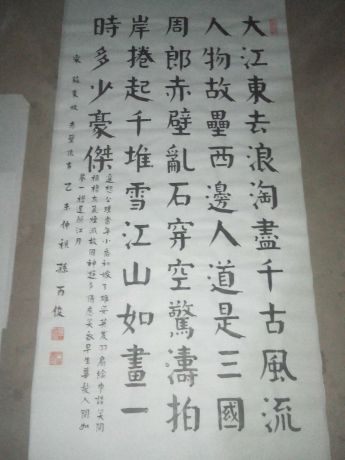 大江東去浪淘盡千古風流
人物故壘西邊人道是三國
周郎赤壁亂石穿空驚濤拍
岸捲起千堆雪江山如畫一
時多少豪傑
遥想公瑾當年小喬初嫁了雄姿英發羽扇綸巾談笑間
檣櫓灰飛煙滅故國神遊多情應笑我早生華髮人間如
夢一樽還酹江月
宋蘇東坡赤壁懷古乙未仲秋孫俊